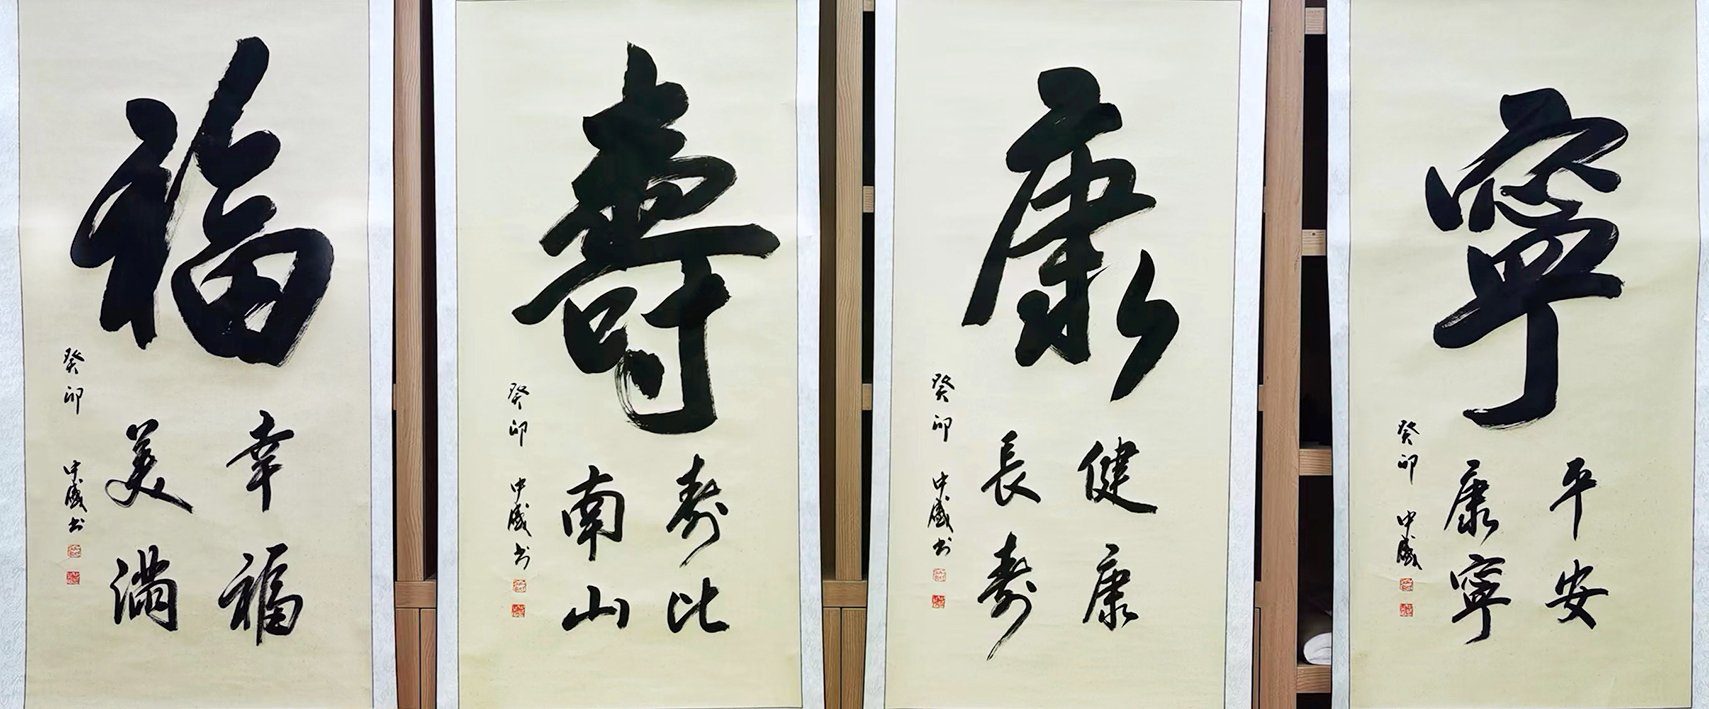 福
幸福
美满
癸卯
中盛书
壽
寿比
南山
癸卯
中盛书
康
健康
長寿
癸卯
中盛书
寧
平安
康寧
癸卯
中盛